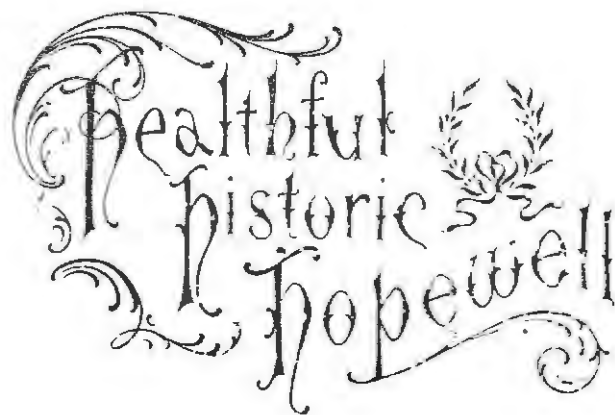 healthful
historic
hopewell